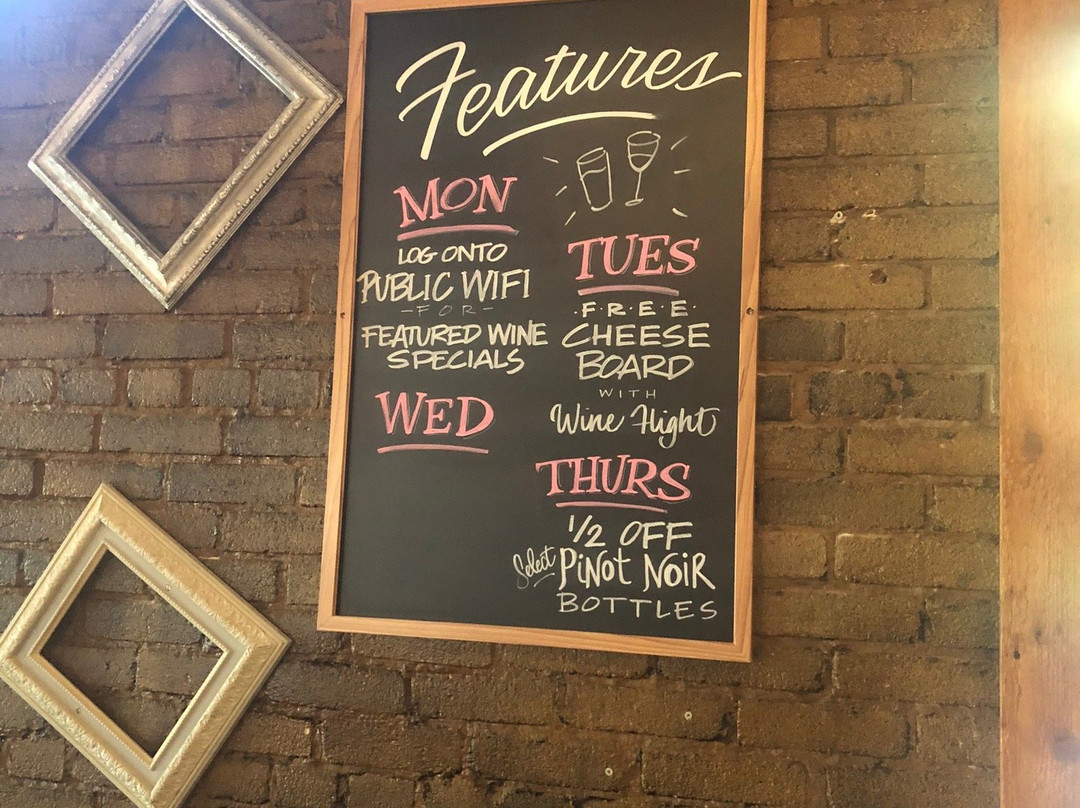 Features
MON
LOG ONTO
PUBLIC WIFI
-FOR-
FEATURED WINE
SPECIALS
TUES
·F·R·E·E·
CHEESE
BOARD
WITH
Wine Flight
WED
THURS
1/2 OFF
Select PiNot NoiR
BOTTLES